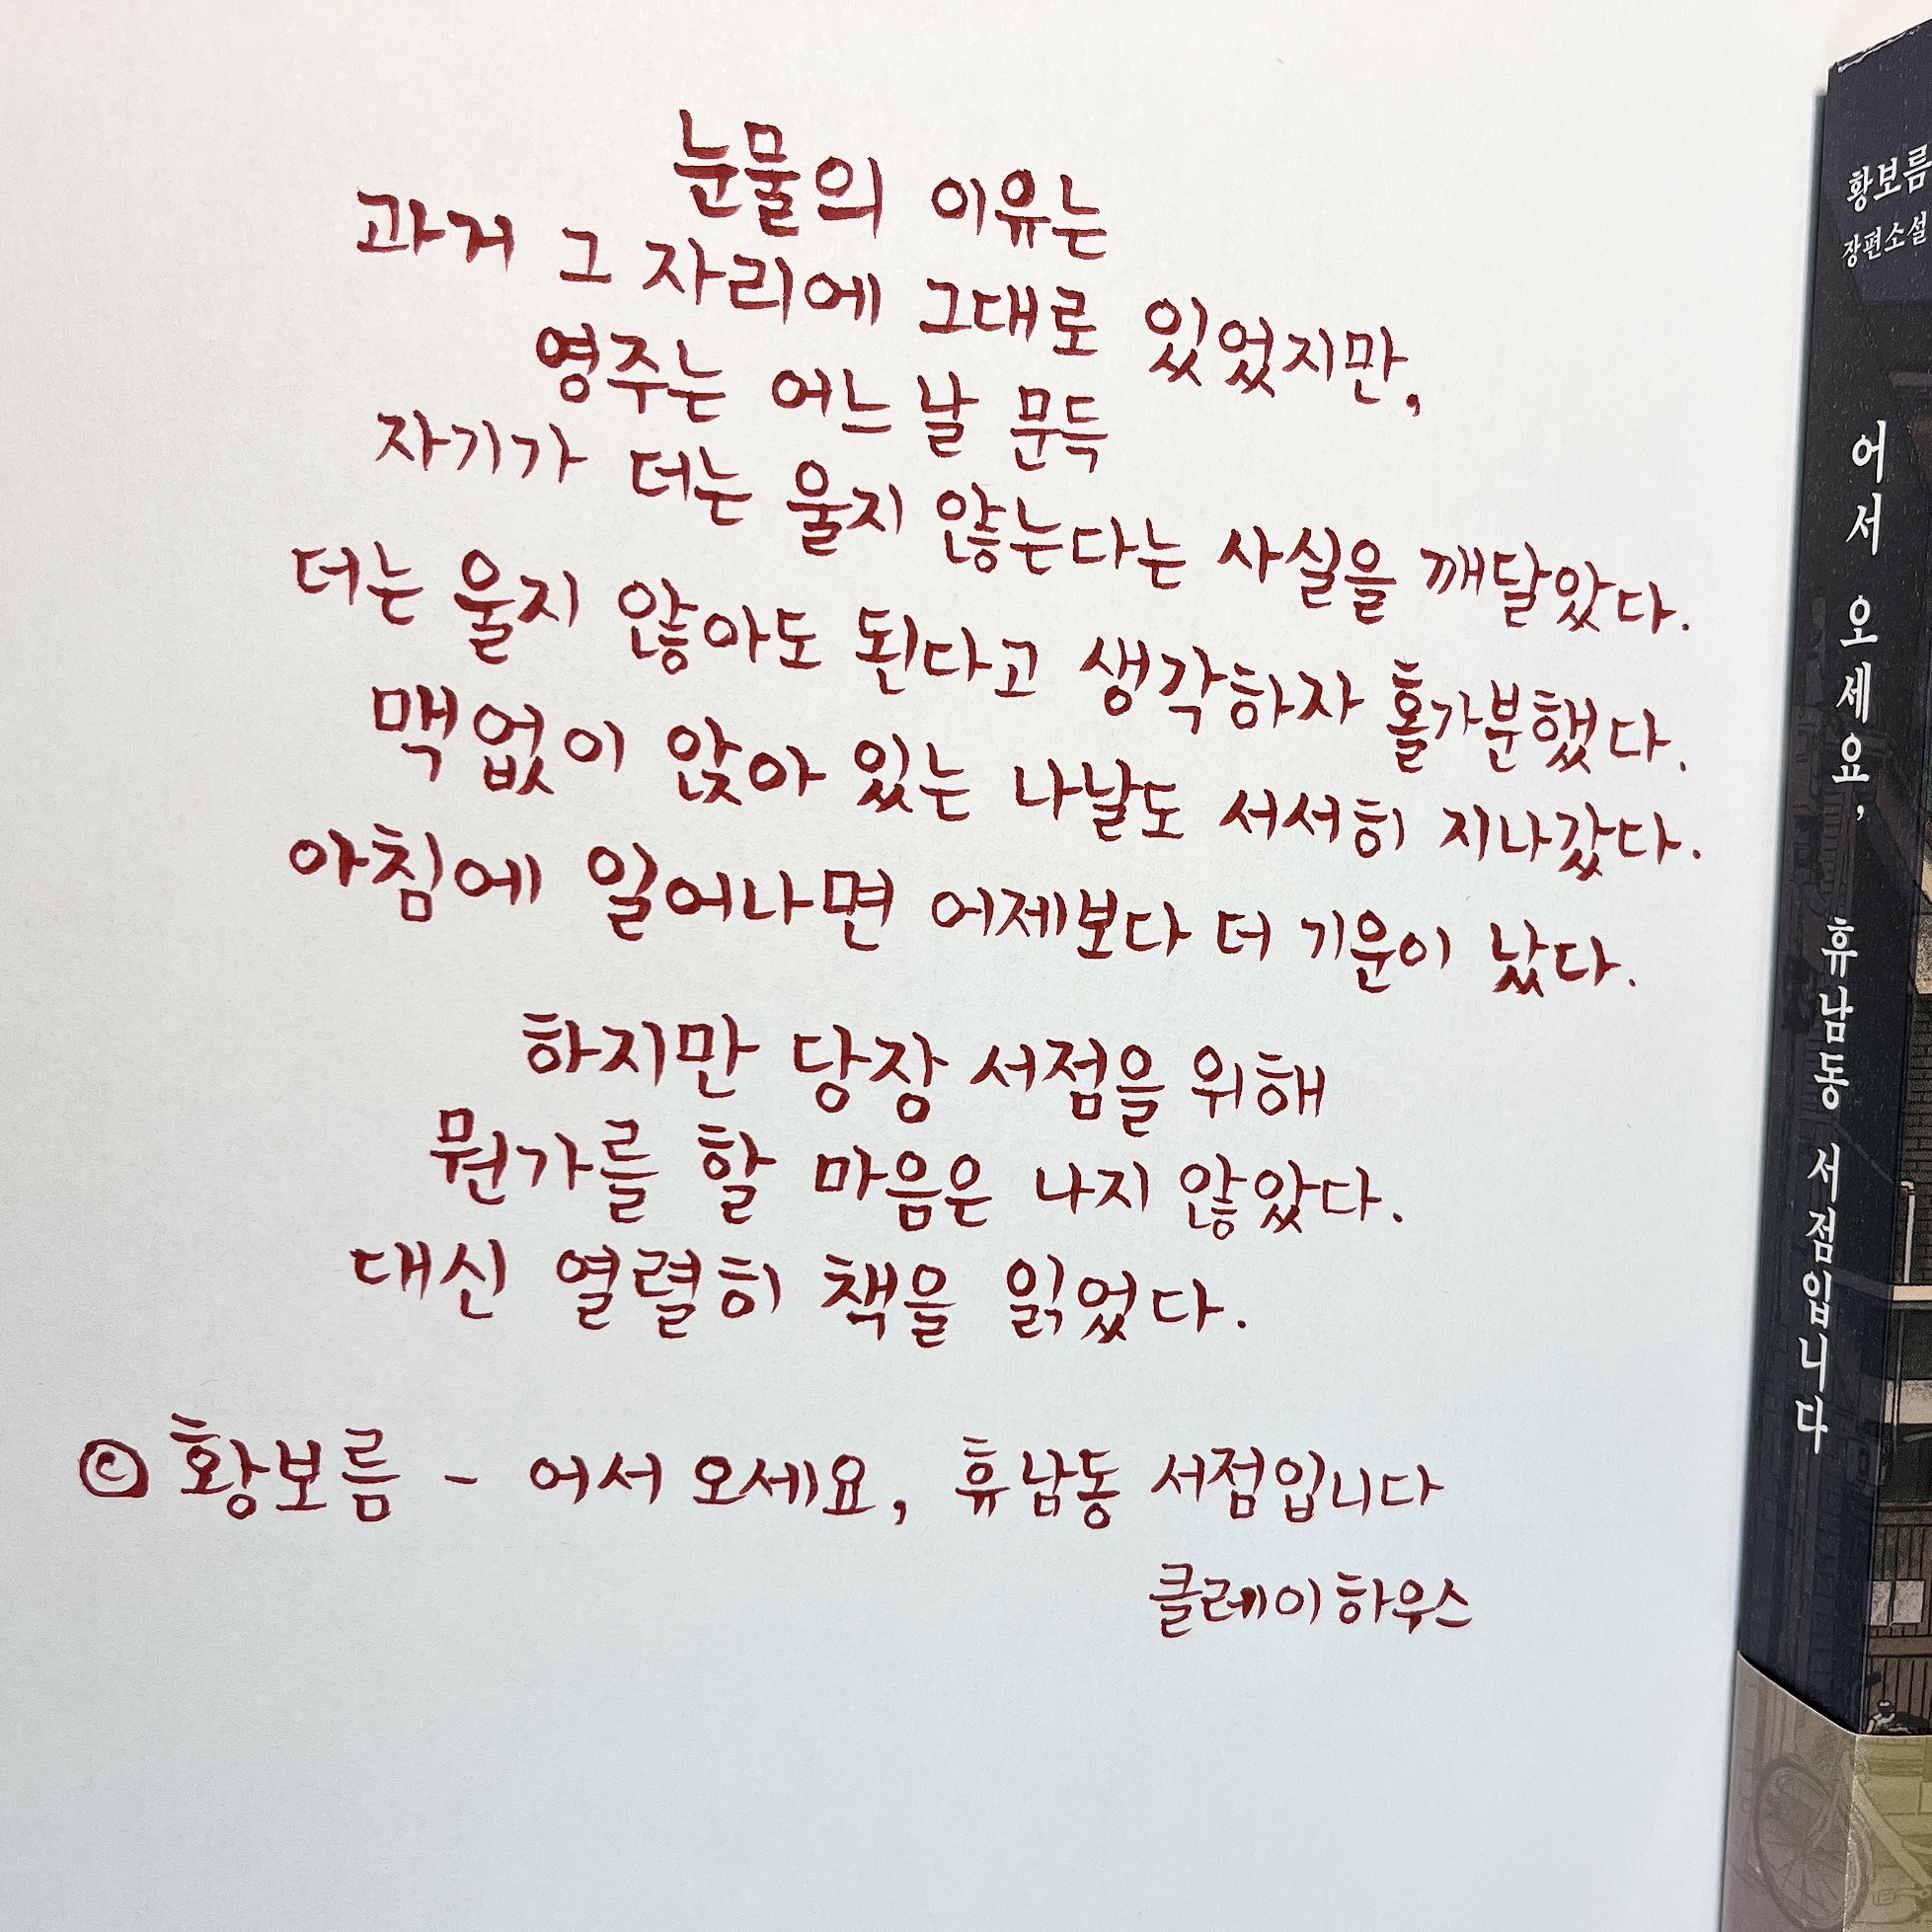 눈물의 이유는
과거 그 자리에 그대로 있었지만,
영주는 어느 날 문득
자기가 더는 울지 않는다는 사실을 깨달았다.
더는 울지 않아도 된다고 생각하자 홀가분했다.
맥없이 앉아 있는 나날도 서서히 지나갔다.
아침에 일어나면 어제보다 더 기운이 났다.
하지만 당장 서점을 위해
뭔가를 할 마음은 나지 않았다.
대신 열렬히 책을 읽었다.
© 황보름 - 어서 오세요, 휴남동 서점입니다
클레이하우스
황보름
장편소설
어서 오세요, 휴남동 서점입니다